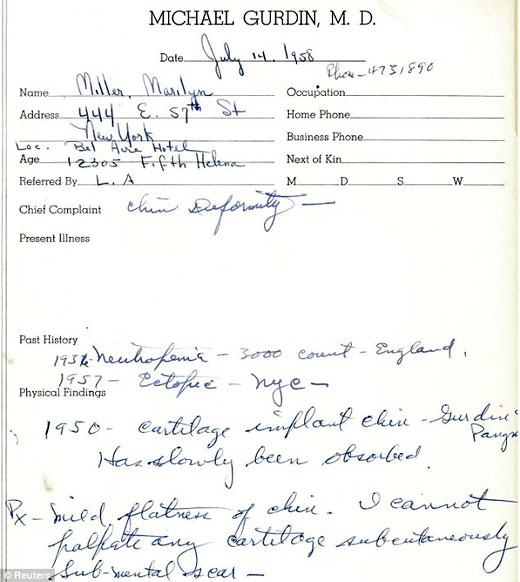 MICHAEL GURDIN, M. D.
Date July 14. 1958
Phone - 4731890
Name Miller, Marilyn Occupation
Address 444 E. 57th St Home Phone
New York Business Phone
Loc. Bel Aire Hotel Next of Kin
Age 12305 Fifth Helena
Referred By L. A M D S W
Chief Complaint chin deformity —
Present Illness
Past History
1956 - Neutropenia - 3000 count - England.
1957 - Ectopic - NYC -
Physical Findings
1950 - cartilage implant chin - Gurdin
Has slowly been absorbed.
Px - mild flatness of chin. I cannot
palpate any cartilage subcutaneously
Sub-mental scar -
© Reuters